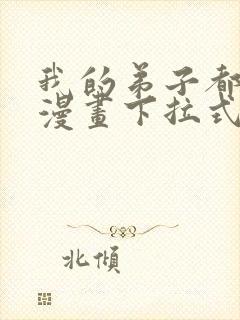 我的弟子都
漫畫下拉式
北傾